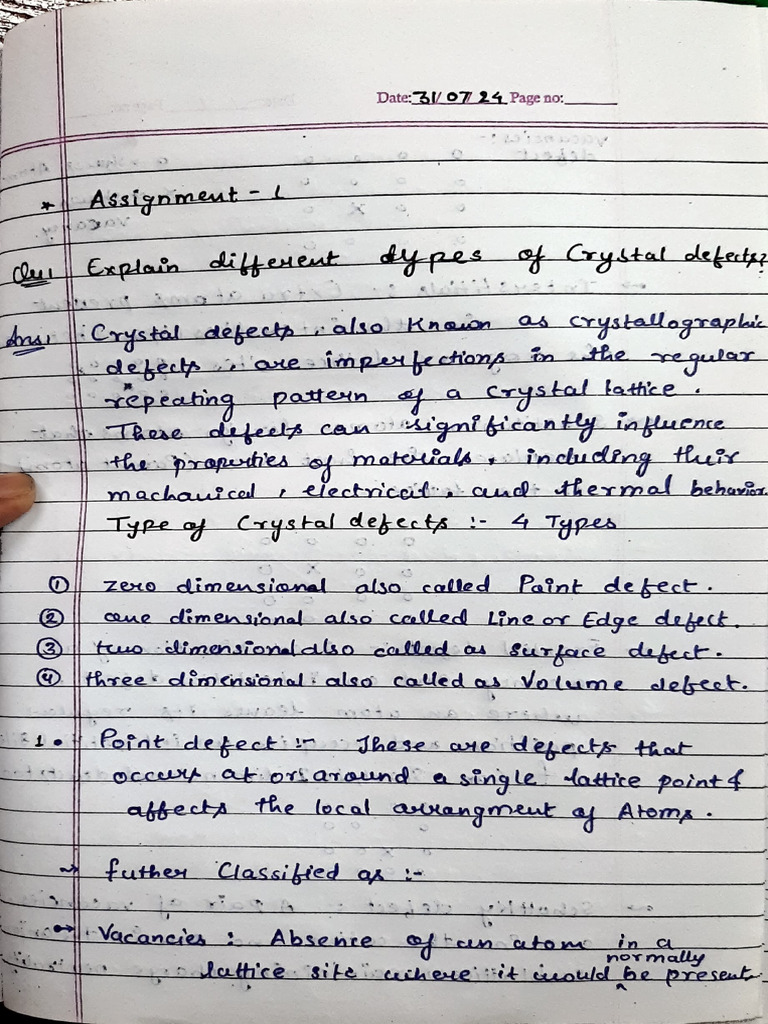 Date: 31/07/24 Page no:
* Assignment - 1
Que1 Explain different types of Crystal defects?
Ans1 Crystal defects, also Known as crystallographic
defects, are imperfections in the regular
repeating pattern of a crystal lattice.
These defects can significantly influence
the properties of materials, including their
machanical, electrical, and thermal behavior.
Type of Crystal defects :- 4 Types
① zero dimensional also called Point defect.
② one dimensional also called Line or Edge defect.
③ two dimensional also called as surface defect.
④ three dimensional also called as Volume defect.
1. Point defect :- These are defects that
occurs at or around a single lattice point &
affects the local arrangment of Atoms.
→ futher Classified as :-
→ Vacancies : Absence of an atom in a
lattice site where it would normally be present